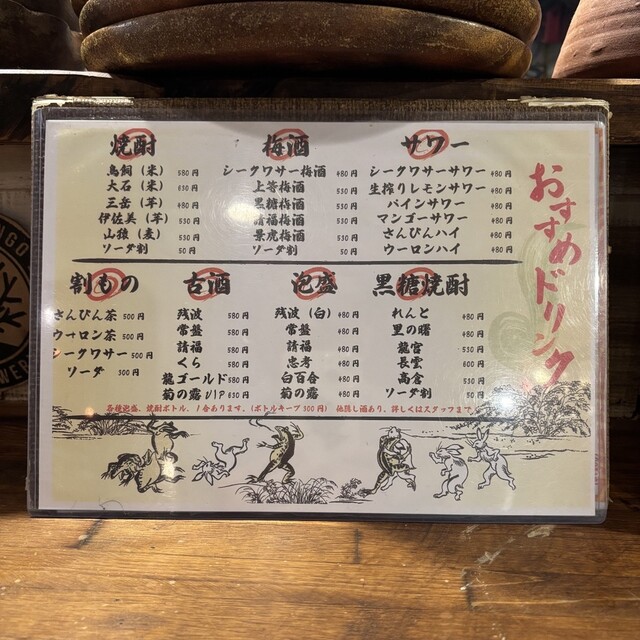 おすすめドリンク
焼酎
鳥飼（米） 580円
大石（米） 630円
三岳（芋） 480円
伊佐美（芋） 530円
山猿（麦） 530円
ソーダ割 50円
梅酒
シークワサー梅酒 480円
上等梅酒 480円
黒糖梅酒 480円
請福梅酒 530円
景虎梅酒 530円
ソーダ割 50円
サワー
シークワサーサワー 480円
生搾りレモンサワー 480円
パインサワー 480円
マンゴーサワー 480円
さんぴんハイ 480円
ウーロンハイ 480円
割もの
さんぴん茶 500円
ウーロン茶 500円
シークワサー 500円
ソーダ 300円
古酒
残波 580円
常盤 580円
請福 580円
くら 580円
龍ゴールド 580円
菊の露VIP 630円
泡盛
残波（白） 480円
常盤 480円
請福 480円
忠孝 480円
白百合 480円
菊の露 480円
黒糖焼酎
れんと 480円
里の曙 480円
龍宮 530円
長雲 600円
高倉 530円
ソーダ割 50円
各種泡盛、焼酎ボトル、1合あります。(ボトルキープ300円) 他隠し酒あり、詳しくはスタッフまで